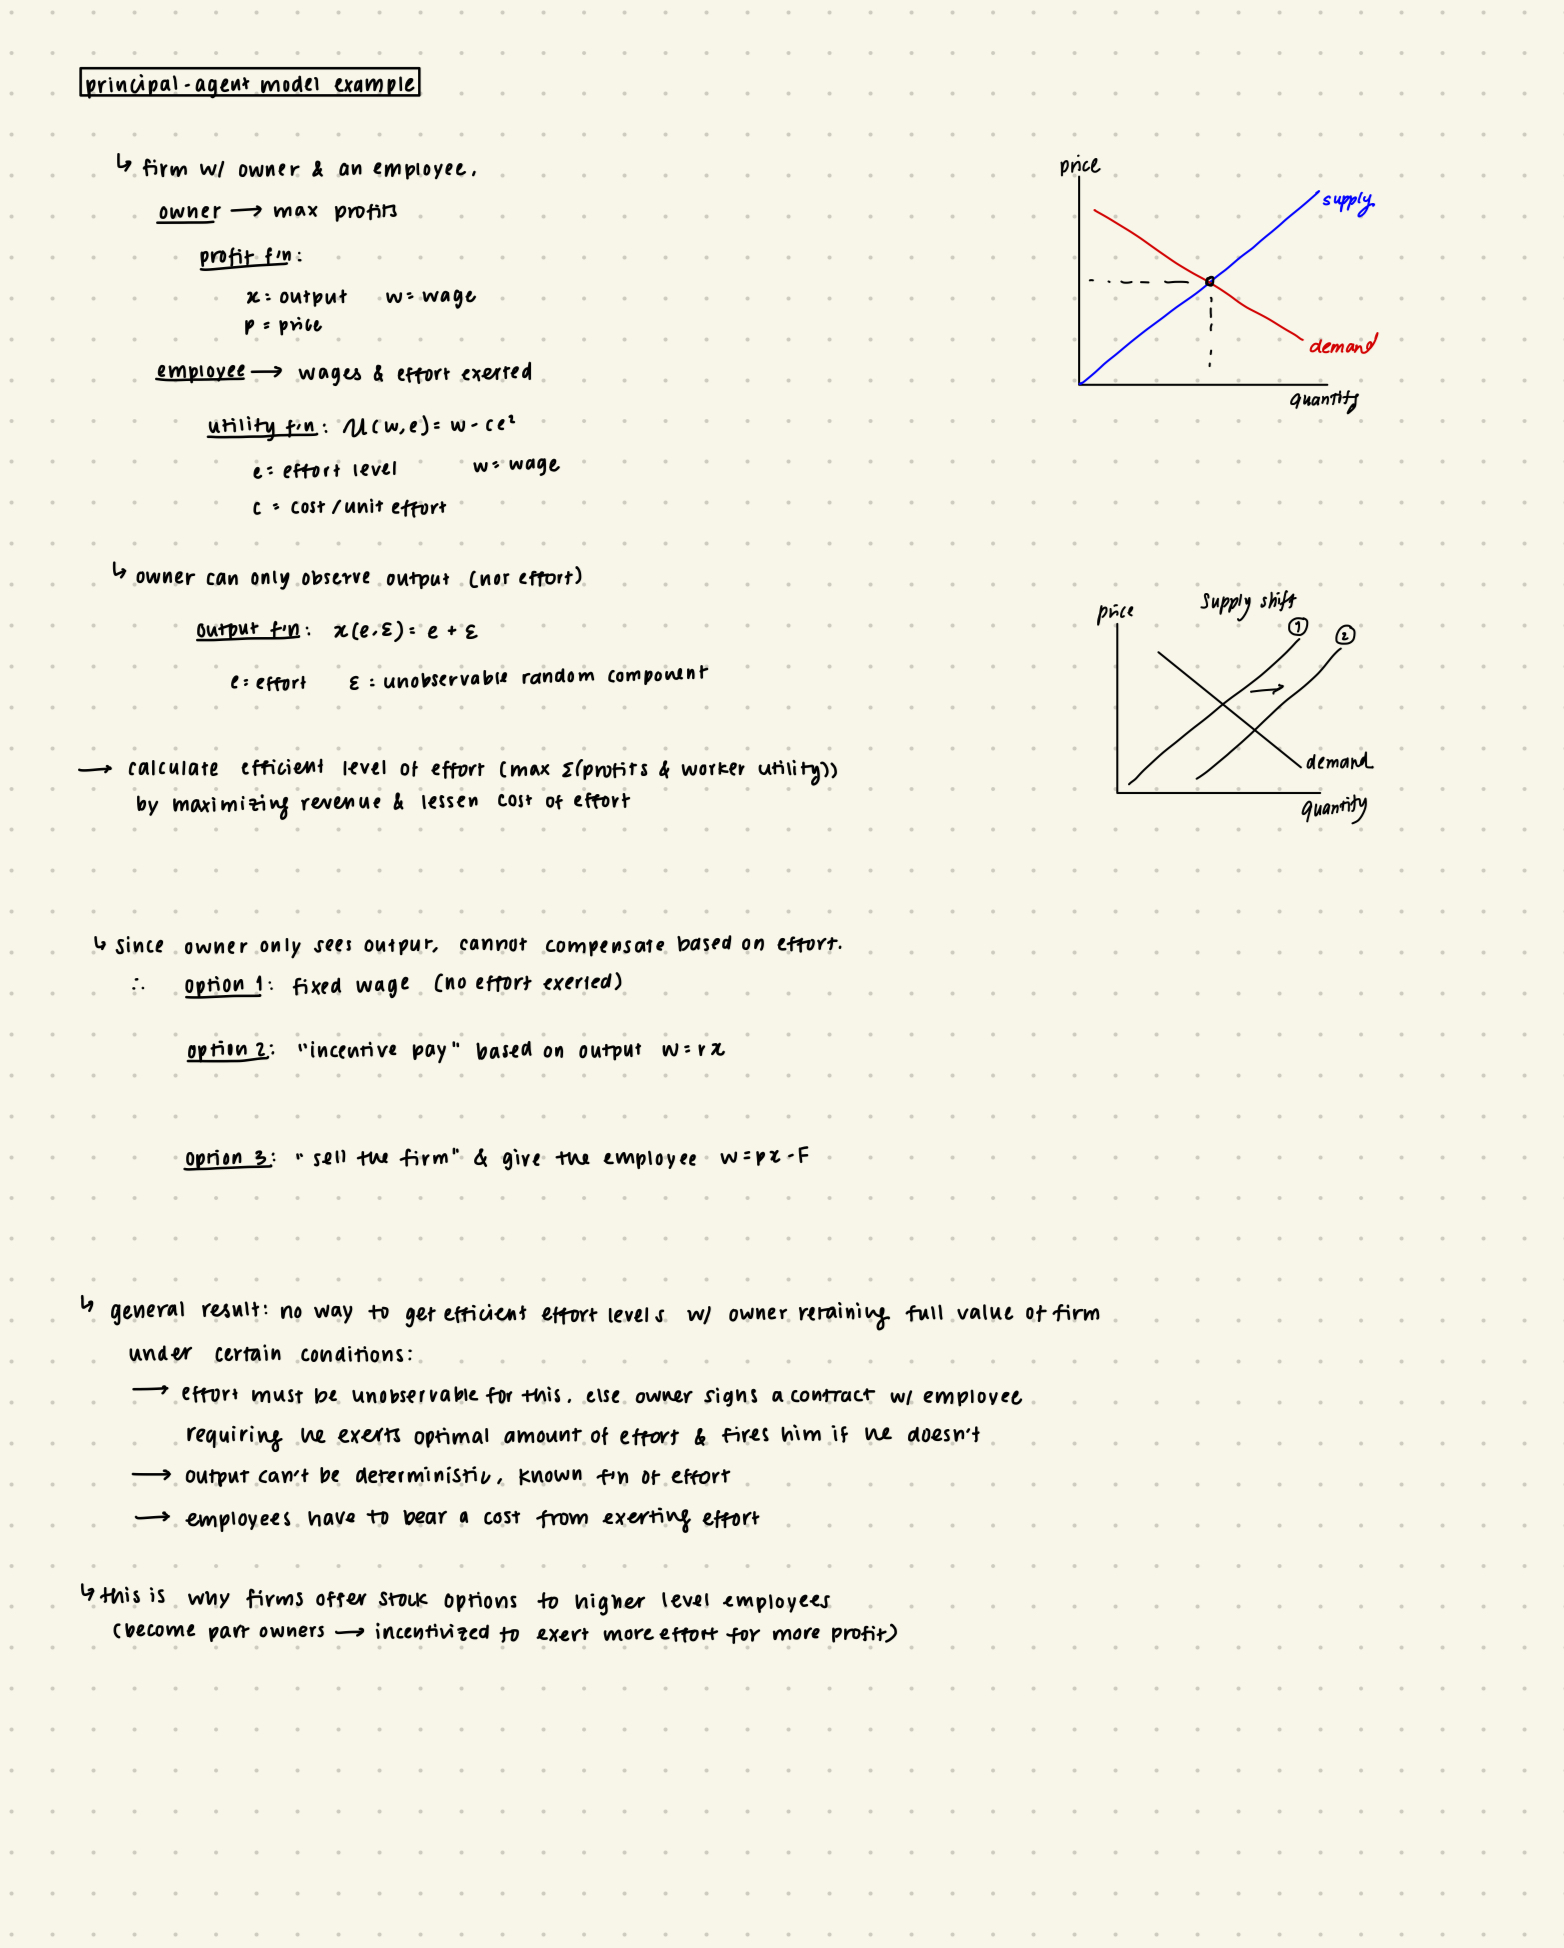 principal-agent model example
↳ firm w/ owner & an employee.
owner → max profits
profit f'n:
x = output w = wage
p = price
employee → wages & effort exerted
utility f'n: U(w,e) = w - ce²
e = effort level w = wage
c = cost/unit effort
↳ owner can only observe output (not effort)
output f'n: x(e,ε) = e + ε
e = effort ε = unobservable random component
→ calculate efficient level of effort (max Σ(profits & worker utility))
by maximizing revenue & lessen cost of effort
↳ since owner only sees output, cannot compensate based on effort.
∴ option 1: fixed wage (no effort exerted)
option 2: "incentive pay" based on output w = rx
option 3: "sell the firm" & give the employee w = px - F
↳ general result: no way to get efficient effort levels w/ owner retaining full value of firm
under certain conditions:
→ effort must be unobservable for this, else owner signs a contract w/ employee
requiring he exerts optimal amount of effort & fires him if he doesn't
→ output can't be deterministic, known f'n of effort
→ employees have to bear a cost from exerting effort
↳ this is why firms offer stock options to higher level employees
(become part owners → incentivized to exert more effort for more profit)
price
supply
demand
quantity
supply shift
price
① ②
demand
quantity